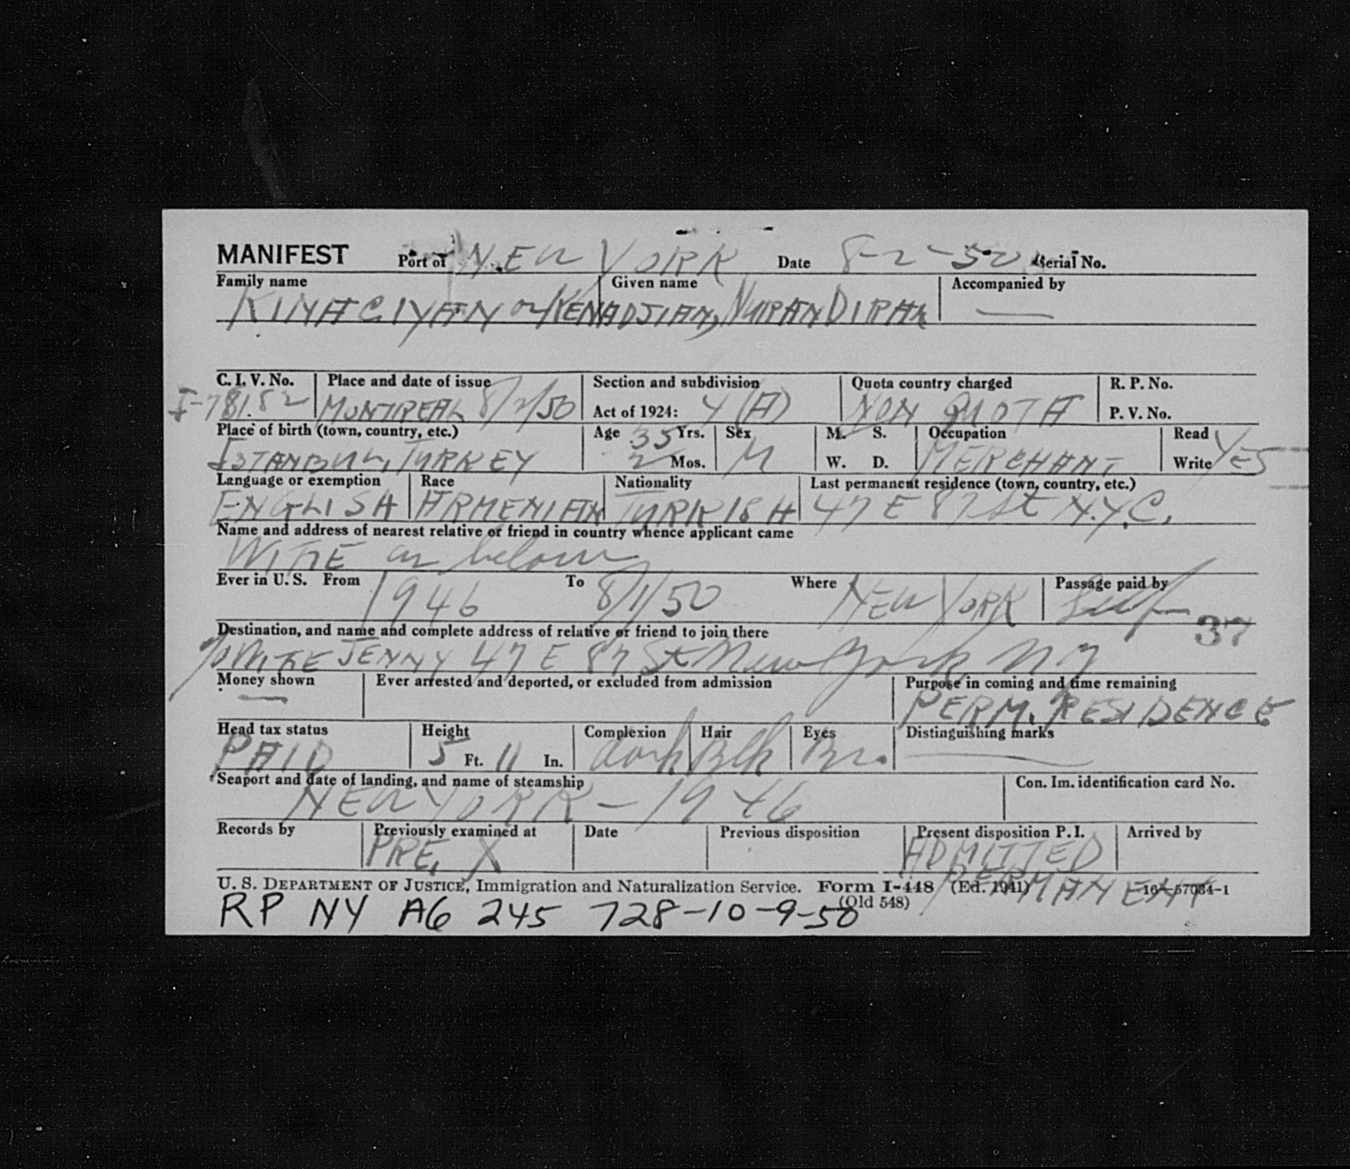 MANIFEST Port of NEW YORK Date 8-2-50 Serial No.
Family name Given name Accompanied by
KINACIYAN or KENADJIAN, NURAN DIRAN —
C. I. V. No. Place and date of issue Section and subdivision Quota country charged R. P. No.
I-78182 MONTREAL 8/2/50 Act of 1924: 4 (A) NON QUOTA P. V. No.
Place of birth (town, country, etc.) Age 35 Yrs. Sex M. S. Occupation Read
ISTANBUL, TURKEY 2 Mos. M W. D. MERCHANT Write YES
Language or exemption Race Nationality Last permanent residence (town, country, etc.)
ENGLISH ARMENIAN TURKISH 47 E 87 St N.Y.C.
Name and address of nearest relative or friend in country whence applicant came
WIFE as below
Ever in U. S. From 1946 To 8/1/50 Where NEW YORK Passage paid by Self
37
Destination, and name and complete address of relative or friend to join there
WIFE JENNY 47 E 87 St New York NY
Money shown Ever arrested and deported, or excluded from admission Purpose in coming and time remaining
— PERM. RESIDENCE
Head tax status Height Complexion Hair Eyes Distinguishing marks
PAID 5 Ft. 11 In. dark Blk Br. —
Seaport and date of landing, and name of steamship Con. Im. identification card No.
NEW YORK - 1946
Records by Previously examined at Date Previous disposition Present disposition P. I. Arrived by
PRE. X ADMITTED
PERMANENT
U. S. DEPARTMENT OF JUSTICE, Immigration and Naturalization Service. Form I-448 (Ed. 1941) 16-57034-1
(Old 548)
RP NY A6 245 728-10-9-50